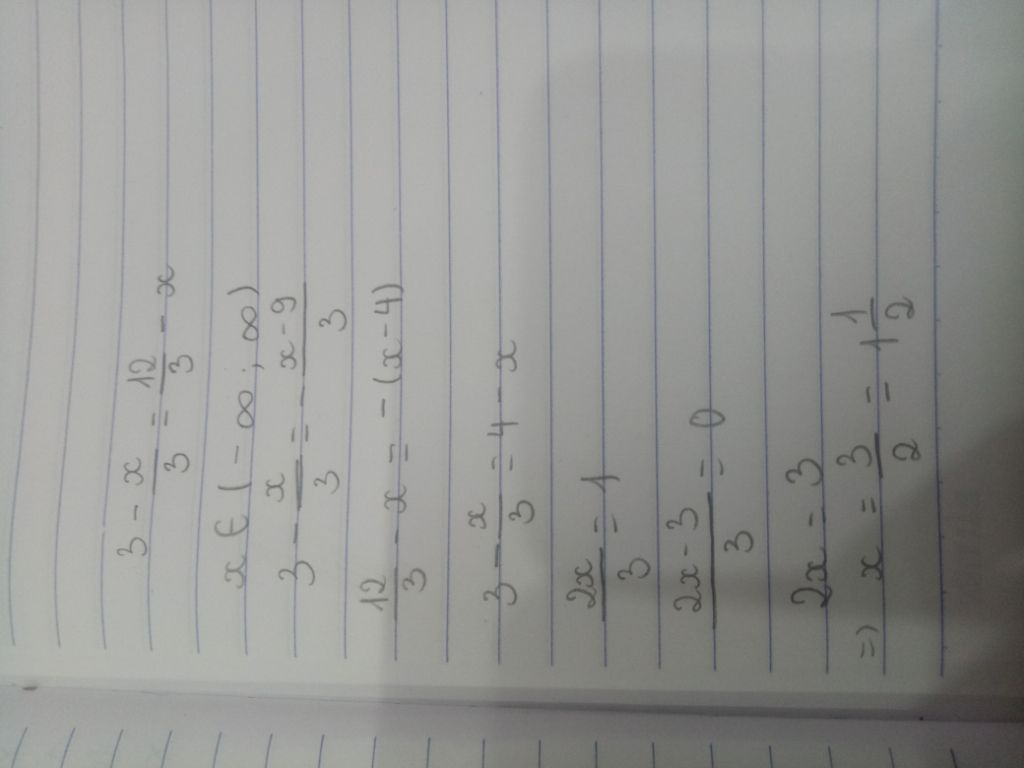 3 - x/3 = 12/3 - x
x ∈ (-∞; ∞)
3 - x/3 = - x-9/3
12/3 - x = -(x-4)
3 - x/3 = 4 - x
2x/3 = 1
2x-3/3 = 0
2x - 3
=> x = 3/2 = 1 1/2